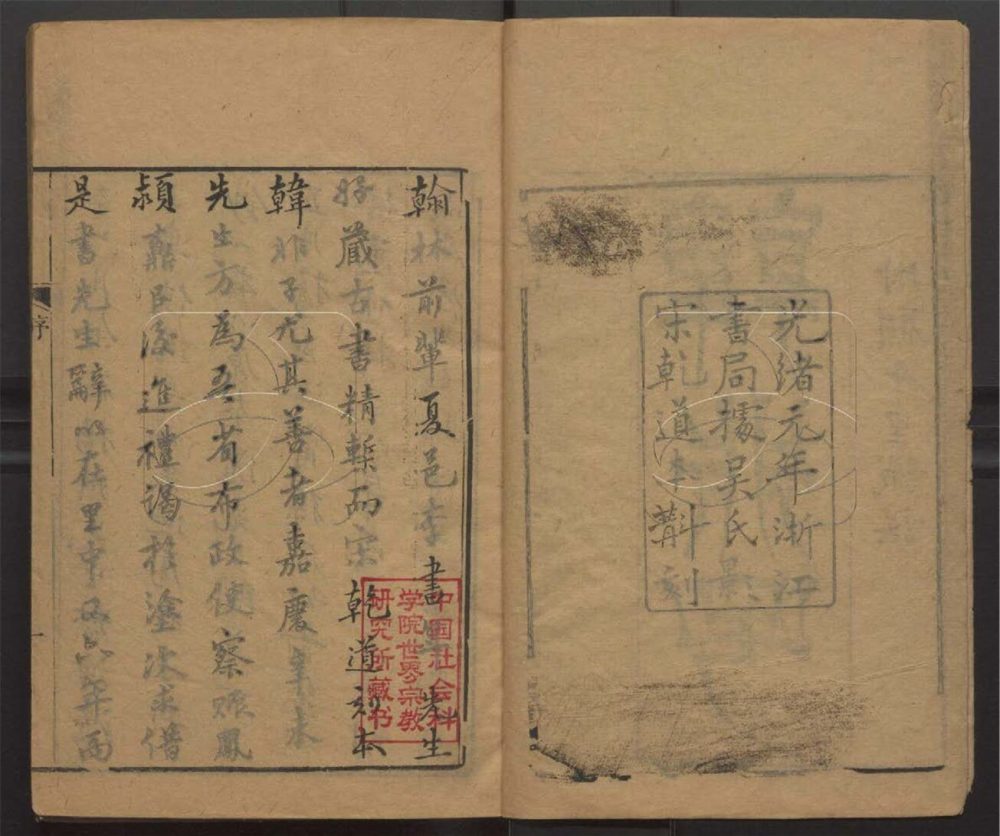 光緒元年浙江
書局據吳氏影
宋乾道本斠刻
翰林前輩夏邑李書年先生
好藏古書精槧而宋乾道刻本
韓非子尤其善者嘉慶辛未
先生方為吾省布政使察賑鳳
潁鼒以後進禮謁於塗次求借
是書先生辭以在里中又六年丙
序
一
中国社会科
学院世界宗教
研究所藏书